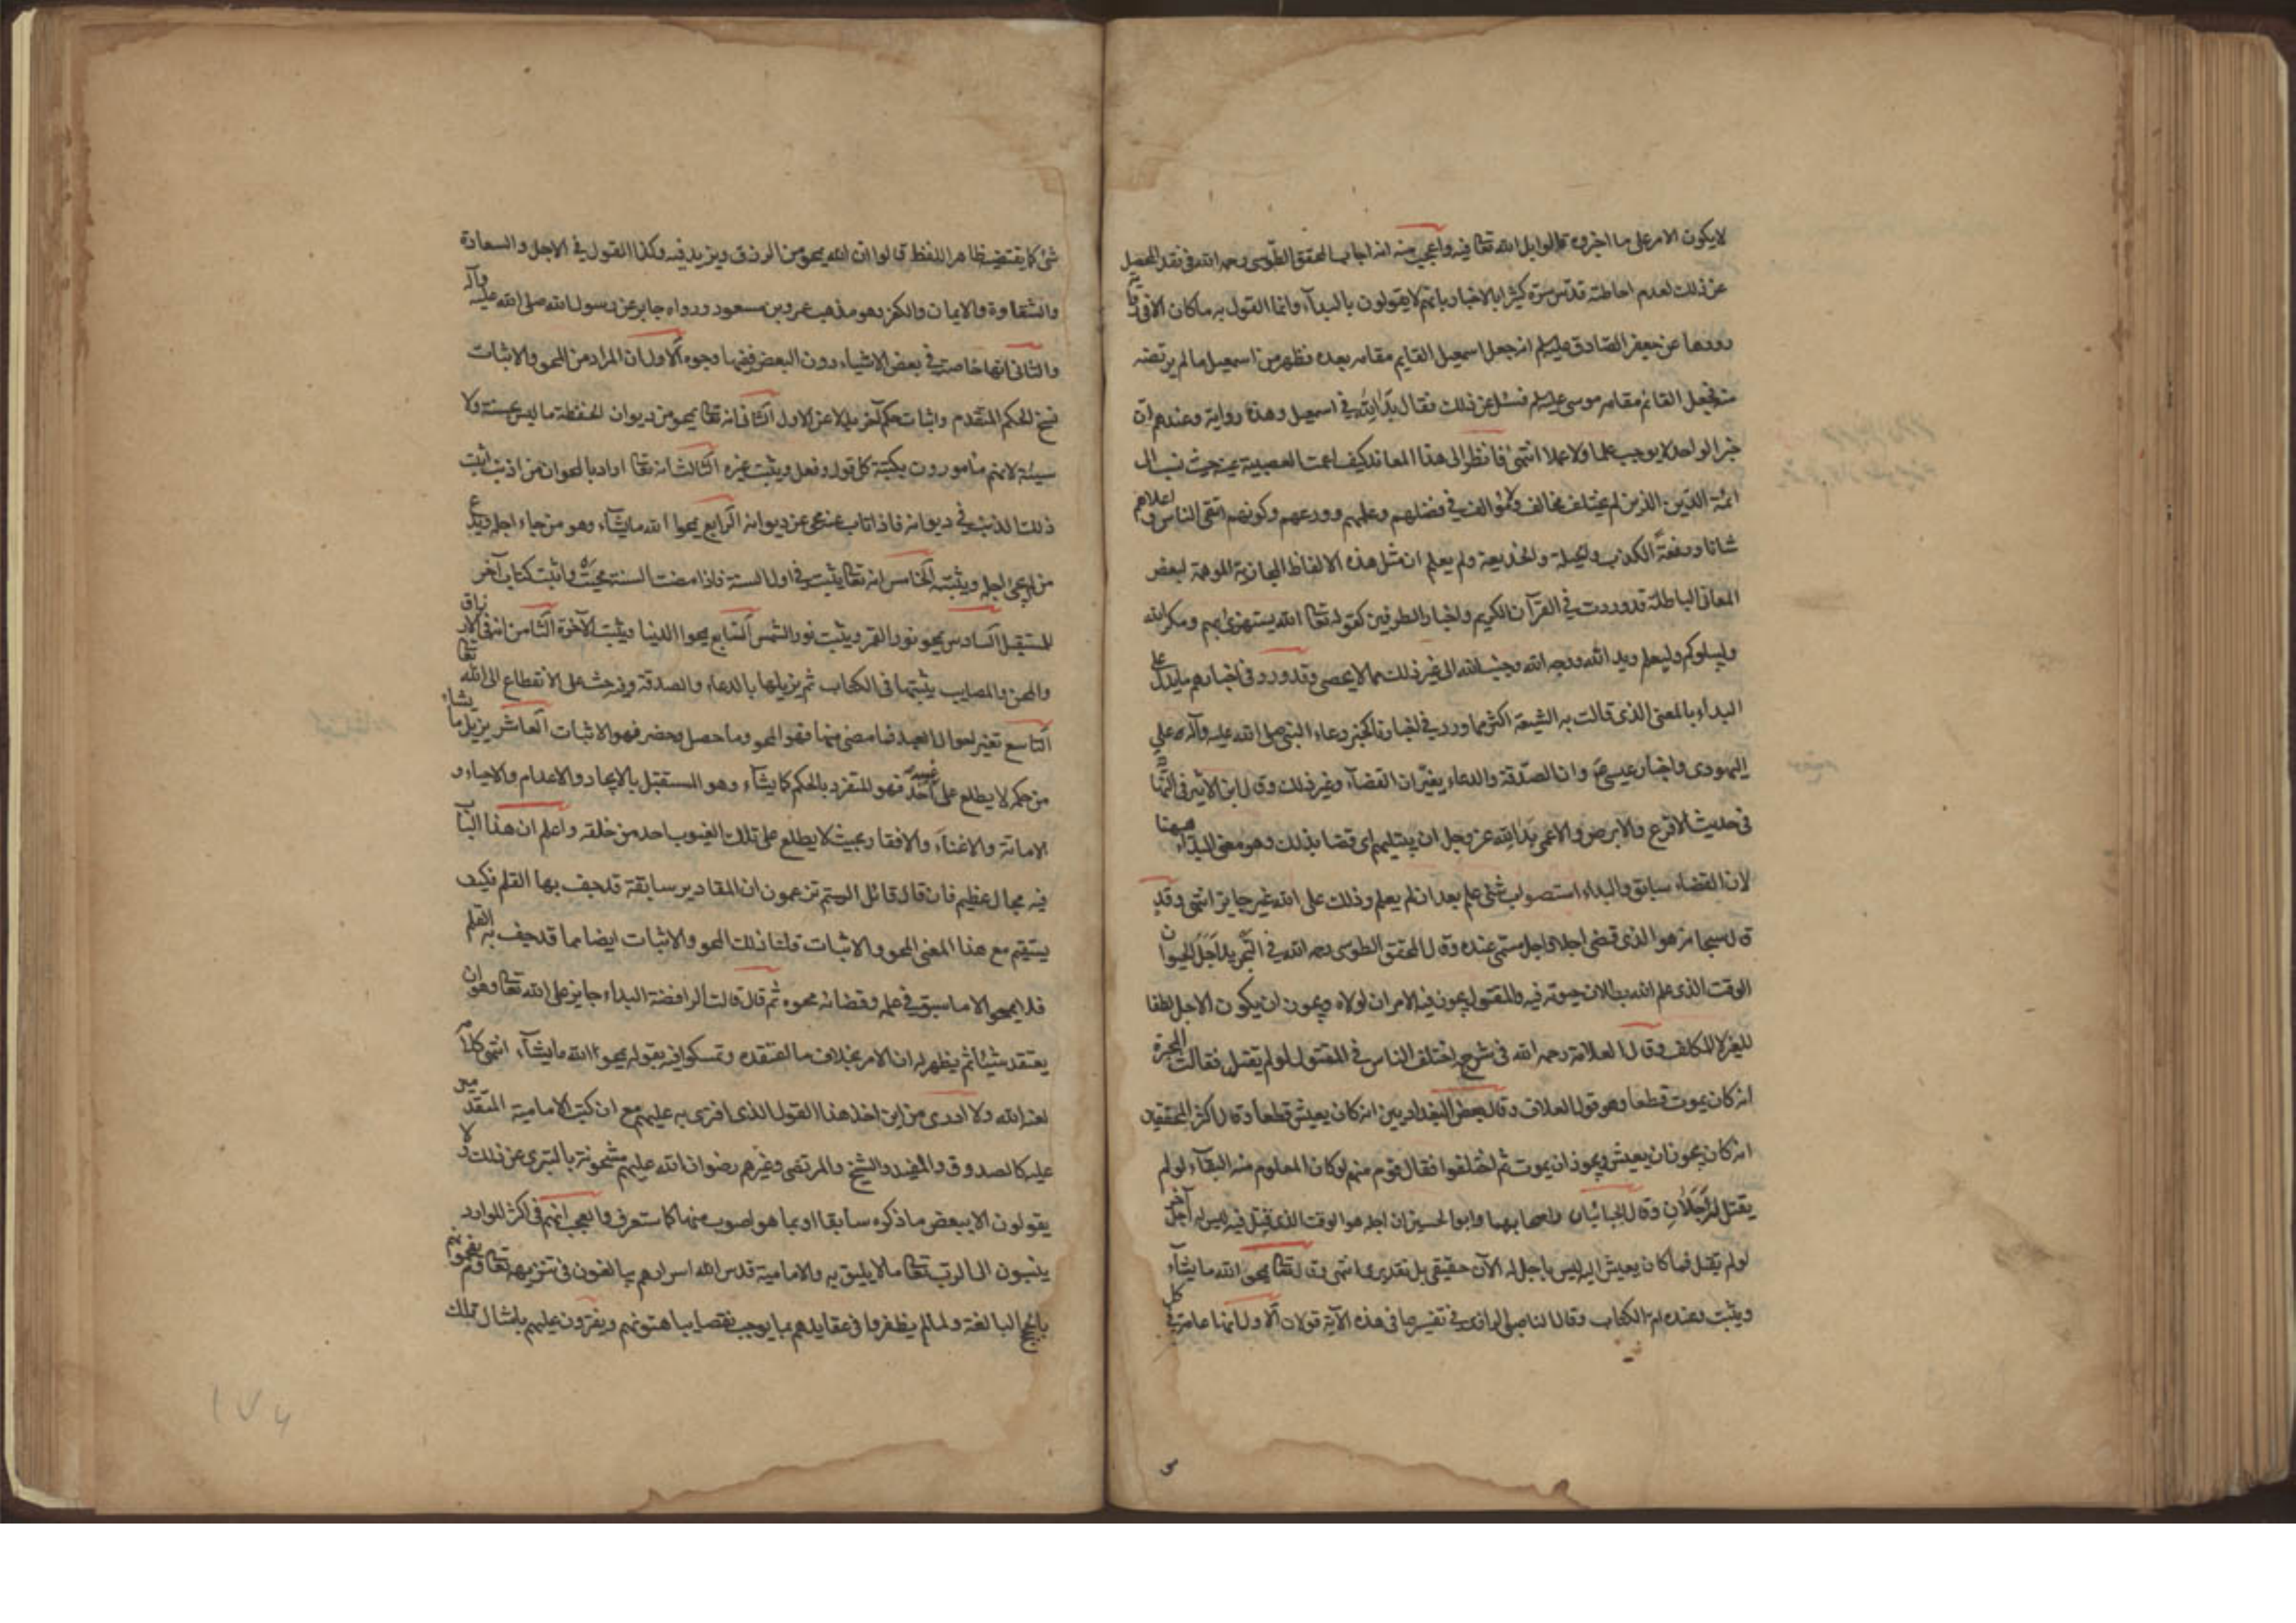 لا يكون الامر على ما اخبروه قالوا بدا لله تعا فيه واعجب منه انه اجاب المحقق الطوسى رحمه الله فى نقد المحصل
عن ذلك لعدم احاطته قدس سره كثيرا بالاخبار بانهم لا يقولون بالبداء وانما القول به ما كان الا فى رواية
رووها عن جعفر الصادق عليه السلم انه جعل اسمعيل القايم مقامه بعده فظهر من اسمعيل ما لم يرتضه
منه فجعل القائم مقامه موسى عليه السلم فسئل عن ذلك فقال بدا لله فى اسمعيل وهذه رواية وعندهم ان
خبر الواحد لا يوجب علما ولا عملا انتهى فانظر الى هذا المعاند كيف اعمت العصبية عينه حيث نسب الى
ائمة الدين الذين لم يختلف مخالف ولا مؤالف فى فضلهم وعلمهم وورعهم وكونهم اتقى الناس واعلاهم
شانا ورفعة الكذب والحيلة والخديعة ولم يعلم ان مثل هذه الالفاظ المجازية الموهمة لبعض
المعانى الباطلة قد وردت فى القرآن الكريم واخبار الطرفين كقوله تعا الله يستهزئ بهم ومكر الله
وليبلوكم وليعلم ويد الله ووجه الله وجنب الله الى غير ذلك مما لا يحصى وقد ورد فى اخبارهم ما يدل على
البداء بالمعنى الذى قالت به الشيعة اكثر مما ورد فى اخبارنا كخبر دعاء النبى صلى الله عليه وآله على
اليهودى واخبار عيسى ع وان الصدقة والدعاء يغيران القضاء وغير ذلك وقال ابن الاثير فى النهاية
فى حديث الاقرع والابرص والاعمى بدا لله عز وجل ان يبتليهم اى قضا بذلك وهو معنى البداء ههنا
لان القضاء سابق والبداء استصواب شئ علم بعد ان لم يعلم وذلك على الله غير جايز انتهى وقد
قال سبحانه هو الذى قضى اجلا واجل مسمى عنده وقال المحقق الطوسى رحمه الله فى التجريد اجل الحيوان
الوقت الذى علم الله بطلان حيوته فيه والمقتول يجوز فيه الامران لولاه ويجوز ان يكون الاجل لطفا
للغير لا للمكلف وقال العلامة رحمه الله فى شرحه اختلف الناس فى المقتول لو لم يقتل فقالت المجبرة
انه كان يموت قطعا وهو قول العلاف وقال بعض البغداديين انه كان يعيش قطعا وقال اكثر المحققين
انه كان يجوز ان يعيش ويجوز ان يموت ثم اختلفوا فقال قوم منهم لو كان المعلوم منه البقاء لو لم
يقتل له اجلان وقال الجبائيان واصحابهما وابو الحسين ان اجله هو الوقت الذى قتل فيه ليس له اجل آخر
لو لم يقتل فما كان يعيش اليه ليس باجل له الآن حقيقى بل تقديرى انتهى وقال تعا يمحو الله ما يشاء
ويثبت وعنده ام الكتاب وقال الناصبى الرازى فى تفسيرها فى هذه الآية قولان الاول انها عامة فى كل
شئ كما يقتضيه ظاهر اللفظ قالوا ان الله يمحو من الرزق ويزيد فيه وكذا القول فى الاجل والسعادة
والشقاوة والايمان والكفر وهو مذهب عمرو بن مسعود ورواه جابر عن رسول الله صلى الله عليه وآله
والثانى انها خاصة فى بعض الاشياء دون البعض ففيها وجوه الاول ان المراد من المحو والاثبات
نسخ الحكم المتقدم واثبات حكم آخر بدلا عن الاول الثانى انه تعا يمحو من ديوان الحفظة ما ليس بحسنة ولا
سيئة لانهم مأمورون بكتبة كل قول وفعل ويثبت غيره الثالث انه تعا اراد بالمحو ان من اذنب اثبت
ذلك الذنب فى ديوانه فاذا تاب عنه محى عن ديوانه الرابع يمحوا الله ما يشاء وهو من جاء اجله ويدع
من لم يجئ اجله ويثبته الخامس انه تعا يثبت فى اول السنة فاذا مضت السنة محيت واثبت كتاب آخر
للمستقبل السادس يمحو نور القمر ويثبت نور الشمس السابع يمحوا الدنيا ويثبت الآخرة الثامن انه فى الارزاق
والمحن والمصايب يثبتها فى الكتاب ثم يزيلها بالدعاء والصدقة وفيه حث على الانقطاع الى الله تعا
التاسع تغير احوال العبد فما مضى منها فهو المحو وما حصل وحضر فهو الاثبات العاشر يزيل ما يشاء
من حكمه لا يطلع على غيبه احد فهو المتفرد بالحكم كما يشاء وهو المستقبل بالايجاد والاعدام والاحياء و
الاماتة والاغناء والافقار بحيث لا يطلع على تلك الغيوب احد من خلقه واعلم ان هذا الباب
فيه مجال عظيم فان قال قائل الستم تزعمون ان المقادير سابقة قد جف بها القلم فكيف
يستقيم مع هذا المعنى المحو والاثبات قلنا ذلك المحو والاثبات ايضا مما قد جف به القلم
فلا يمحو الا ما سبق فى علمه وقضائه محوه ثم قال قالت الرافضة البداء جايز على الله تعا وهو ان
يعتقد شيئا ثم يظهر له ان الامر بخلاف ما اعتقده وتمسكوا فيه بقوله يمحو الله ما يشاء انتهى كلامه
لعنه الله ولا ادرى من اين اخذ هذا القول الذى افترى به عليهم مع ان كتب الامامية المتقدمين
عليه كالصدوق والمفيد والشيخ والمرتضى وغيرهم رضوان الله عليهم مشحونة بالتبرى عن ذلك ولا
يقولون الا ببعض ما ذكره سابقا او بما هو اصوب منها كما ستعرف والعجب انهم فى اكثر الموارد
ينسبون الى الرب تعا ما لا يليق به والامامية قدس الله اسرارهم يبالغون فى تنزيهه تعا ويفحمونهم
بالحجج البالغة ولما لم يظفروا فى عقايدهم بما يوجب نقصا يباهتونهم ويفترون عليهم بامثال تلك
١٧٤